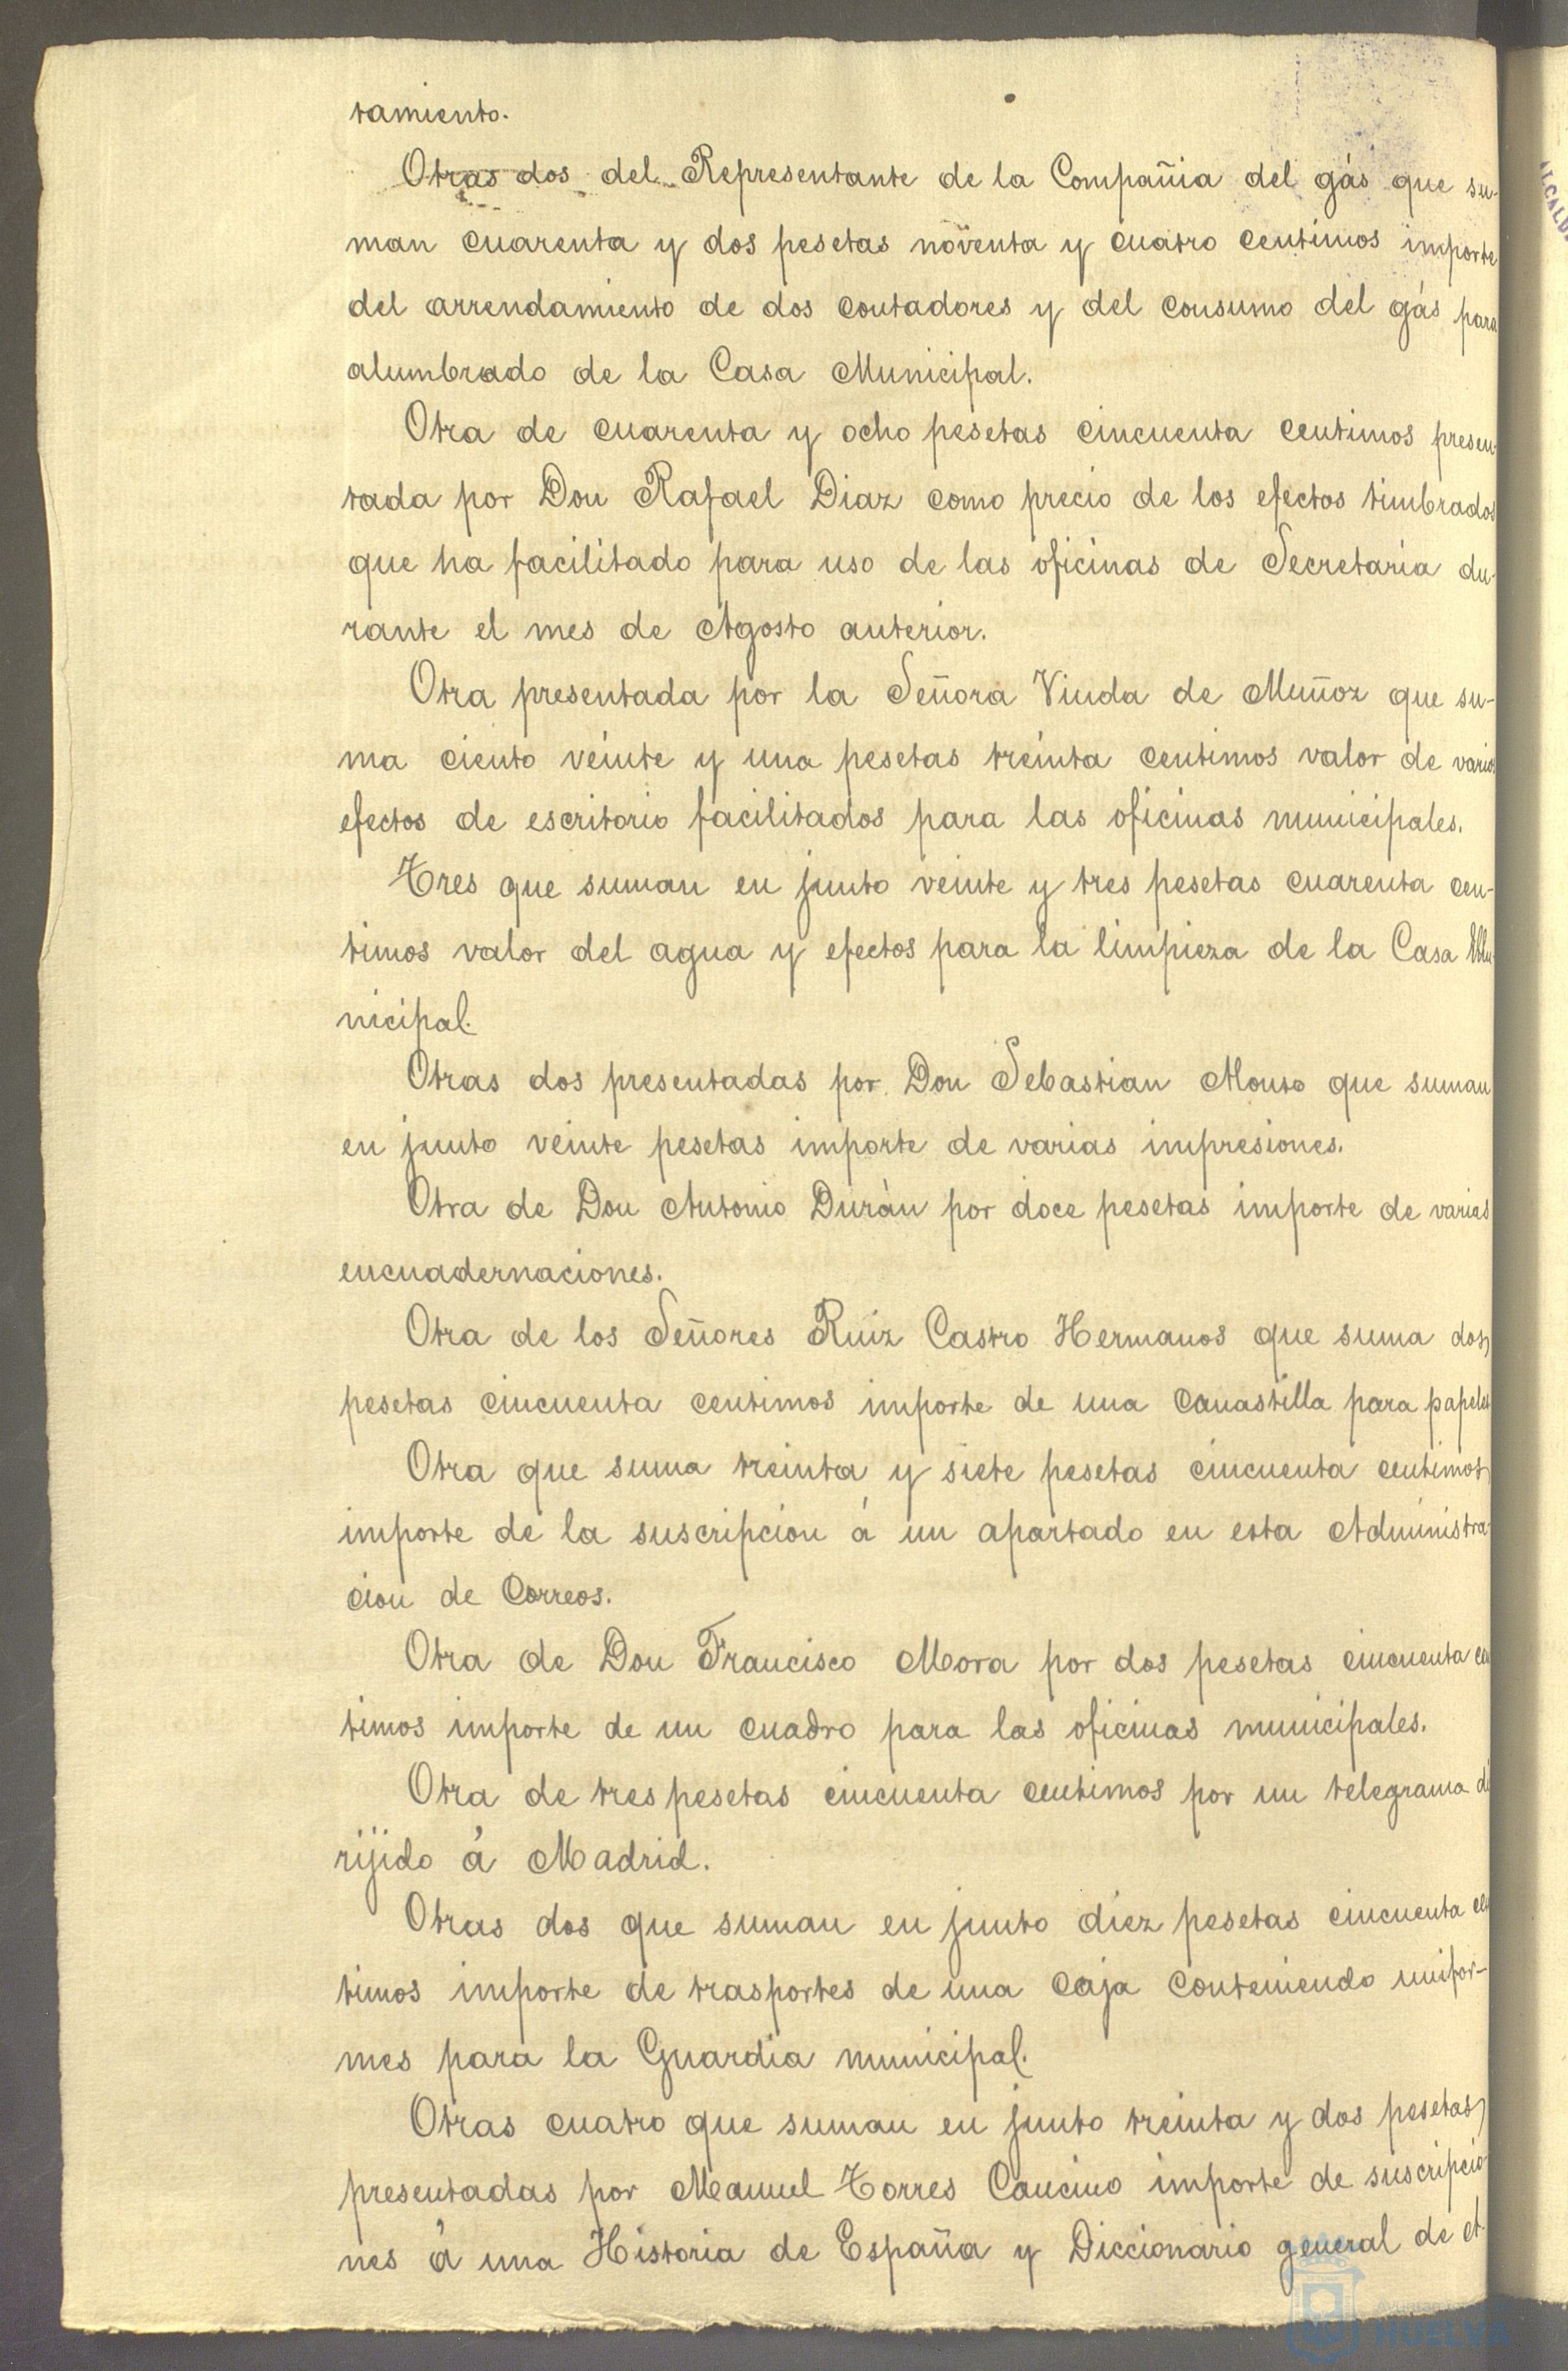 tamiento.
Otras dos del Representante de la Compañia del gás que su-
man cuarenta y dos pesetas noventa y cuatro centimos importe
del arrendamiento de dos contadores y del consumo del gás para
alumbrado de la Casa Municipal.
Otra de cuarenta y ocho pesetas cincuenta centimos presen-
tada por Don Rafael Diaz como precio de los efectos timbrados
que ha facilitado para uso de las oficinas de Secretaría du-
rante el mes de Agosto anterior.
Otra presentada por la Señora Viuda de Muñoz que su-
ma ciento veinte y una pesetas treinta centimos valor de varios
efectos de escritorio facilitados para las oficinas municipales.
Tres que suman en junto veinte y tres pesetas cuarenta cen-
timos valor del agua y efectos para la limpieza de la Casa Mu-
nicipal.
Otras dos presentadas por Don Sebastian Monto que suman
en junto veinte pesetas importe de varias impresiones.
Otra de Don Antonio Durán por doce pesetas importe de varias
encuadernaciones.
Otra de los Señores Ruiz Castro Hermanos que suma dos
pesetas cincuenta centimos importe de una canastilla para papeles
Otra que suma treinta y siete pesetas cincuenta centimos
importe de la suscripcion á un apartado en esta Administra-
cion de Correos.
Otra de Don Francisco Mora por dos pesetas cincuenta cen
timos importe de un cuadro para las oficinas municipales.
Otra de tres pesetas cincuenta centimos por un telegrama di
rijido á Madrid.
Otras dos que suman en junto diez pesetas cincuenta cen
timos importe de trasportes de una caja conteniendo unifor-
mes para la Guardia municipal.
Otras cuatro que suman en junto treinta y dos pesetas
presentadas por Manuel Torres Cancino importe de suscripcio-
nes á una Historia de España y Diccionario general de
HUELVA